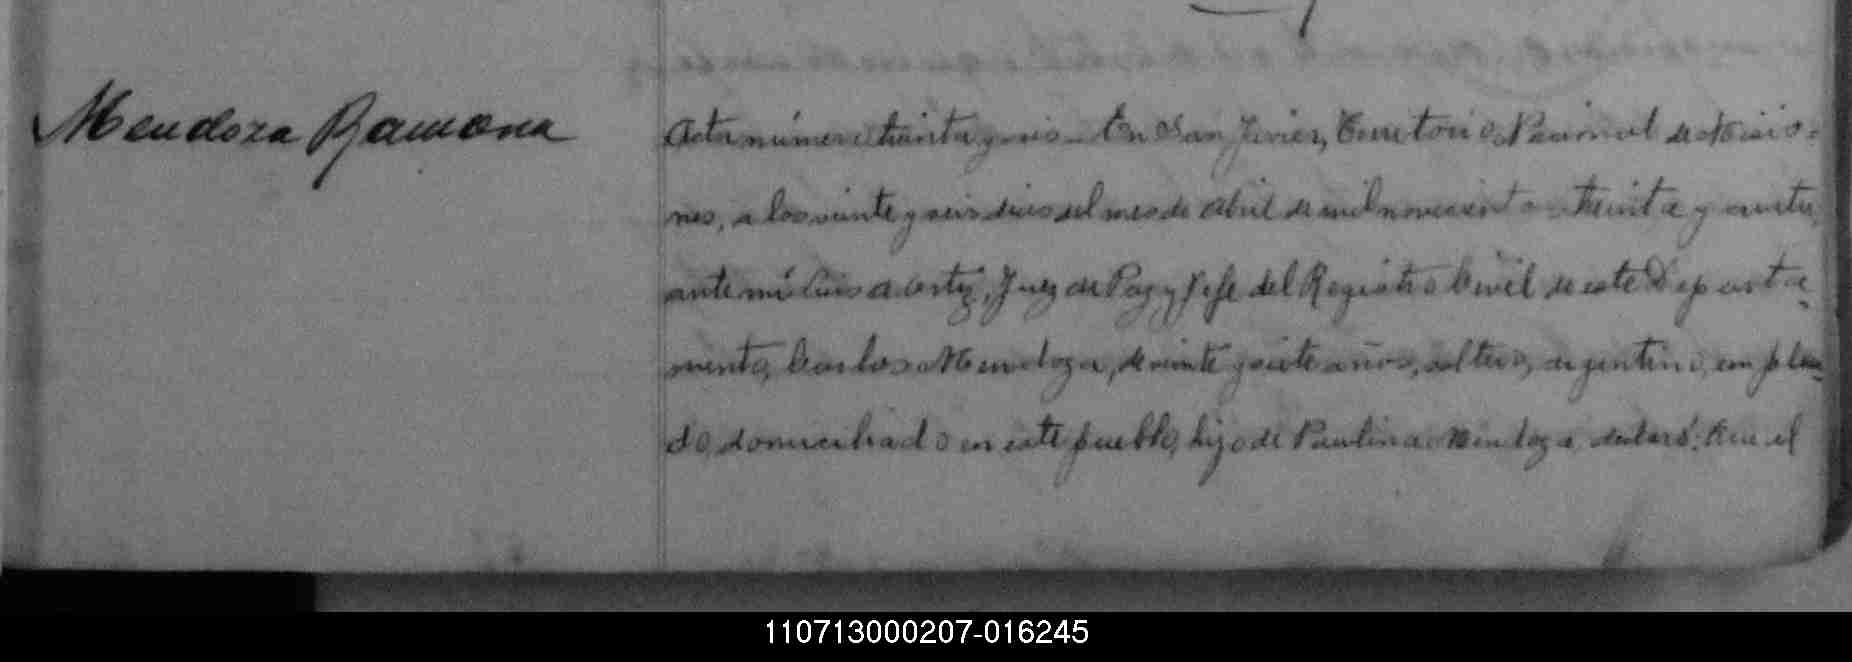 Mendoza Ramona
Acta número treinta y seis. En San Javier, Territorio Nacional de Misio-
nes, a los veinte y seis dias del mes de Abril de mil novecientos treinta y cuatro,
ante mí Luis A. Ortiz, Juez de Paz y Jefe del Registro Civil de este Departa-
mento, Carlos Mendoza, de veinte y siete años, soltero, argentino, emplea-
do, domiciliado en este pueblo, hijo de Paulina Mendoza, declaró: Que el
110713000207-016245